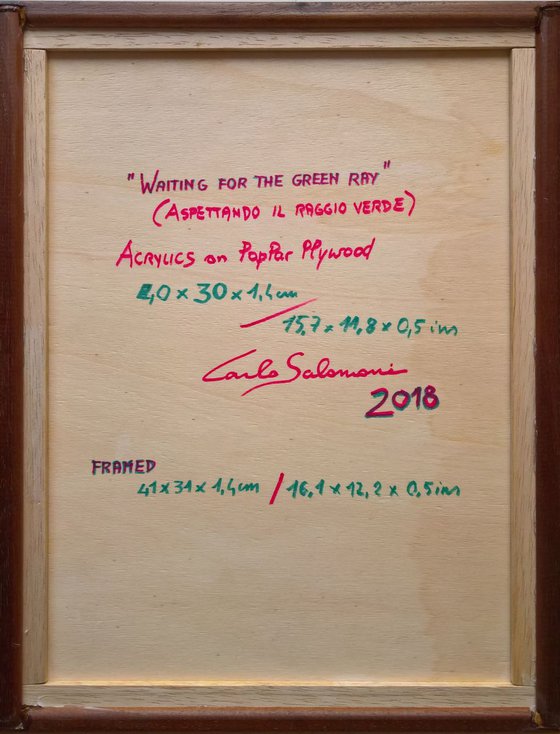 "WAITING FOR THE GREEN RAY"
(ASPETTANDO IL RAGGIO VERDE)
ACRYLICS on PopPar Plywood
40 x 30 x 1,4 cm
/ 15,7 x 11,8 x 0,5 in
Carlo Salomoni
2018
FRAMED
41 x 31 x 1,4 cm / 16,1 x 12,2 x 0,5 in